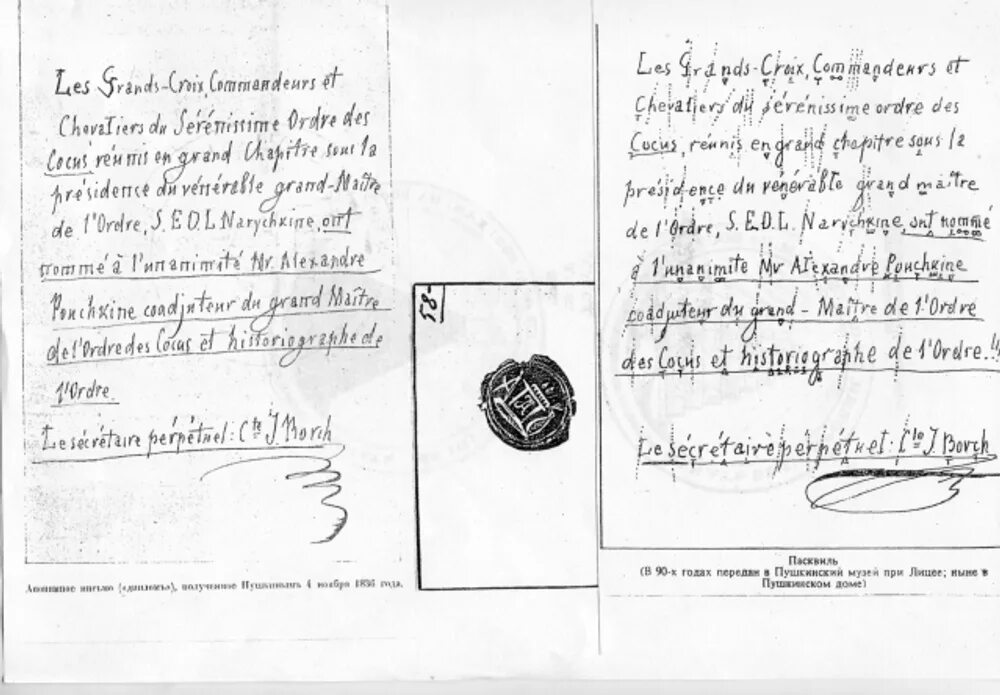 Les Grands-Croix, Commandeurs et
Chevaliers du Sérénissime Ordre des
Cocus, réunis en grand Chapitre sous la
présidence du vénérable grand-Maître
de l'Ordre, S.E.D.L. Narychkine, ont
nommé à l'unanimité Mr. Alexandre
Pouchkine coadjuteur du grand Maître
de l'Ordre des Cocus et historiographe de
l'Ordre.
Le sécrétaire perpétuel: Cte J Borch
Анонимное письмо («дипломъ»), полученное Пушкинымъ 4 ноября 1836 года.
58-
Les Grands-Croix, Commandeurs et
Chevaliers du sérénissime ordre des
Cocus, réunis en grand chapitre sous la
présidence du vénérable grand maître
de l'Ordre, S.E.D.L. Narychkine, ont nommé
à l'unanimite Mr Alexandre Pouchkine
coadjuteur du grand-Maître de l'Ordre
des Cocus et historiographe de l'Ordre..!!
Le sécrétaire perpétuel: Cte J. Borch
Пасквиль
(В 90-х годах передан в Пушкинский музей при Лицее; ныне в
Пушкинском доме)